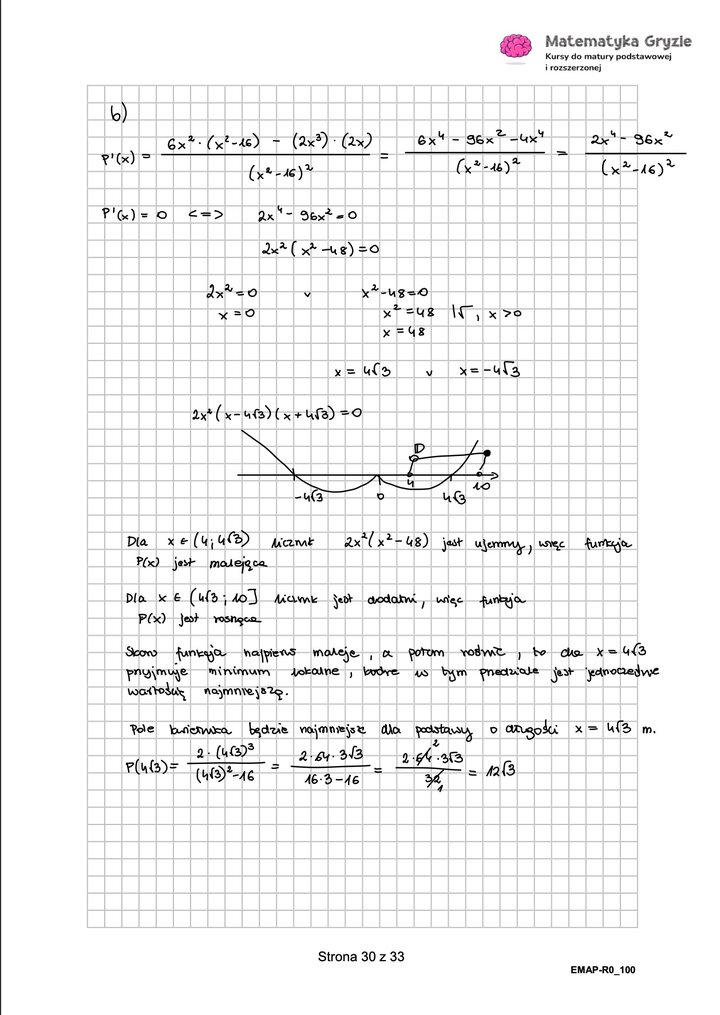 Matematyka Gryzie
Kursy do matury podstawowej
i rozszerzonej
b)
P'(x) = \frac{6x²·(x²-16) - (2x³)·(2x)}{(x²-16)²} = \frac{6x⁴ - 96x² - 4x⁴}{(x²-16)²} = \frac{2x⁴ - 96x²}{(x²-16)²}
P'(x) = 0 <=> 2x⁴ - 96x² = 0
2x²(x² - 48) = 0
2x² = 0 v x² - 48 = 0
x = 0 x² = 48 |√, x > 0
x = 48
x = 4√3 v x = -4√3
2x²(x - 4√3)(x + 4√3) = 0
D
-4√3 0 4 4√3 10
Dla x ∈ (4; 4√3) licznik 2x²(x² - 48) jest ujemny, więc funkcja
P(x) jest malejąca
Dla x ∈ (4√3; 10] licznik jest dodatni, więc funkcja
P(x) jest rosnąca
Skoro funkcja najpierw maleje, a potem rośnie, to dla x = 4√3
przyjmuje minimum lokalne, które w tym przedziale jest jednocześnie
wartością najmniejszą.
Pole kwietnika będzie najmniejsze dla podstawy o długości x = 4√3 m.
P(4√3) = \frac{2·(4√3)³}{(4√3)² - 16} = \frac{2·64·3√3}{16·3 - 16} = \frac{2·64·3√3}{32} = 12√3
2
1
Strona 30 z 33
EMAP-R0_100